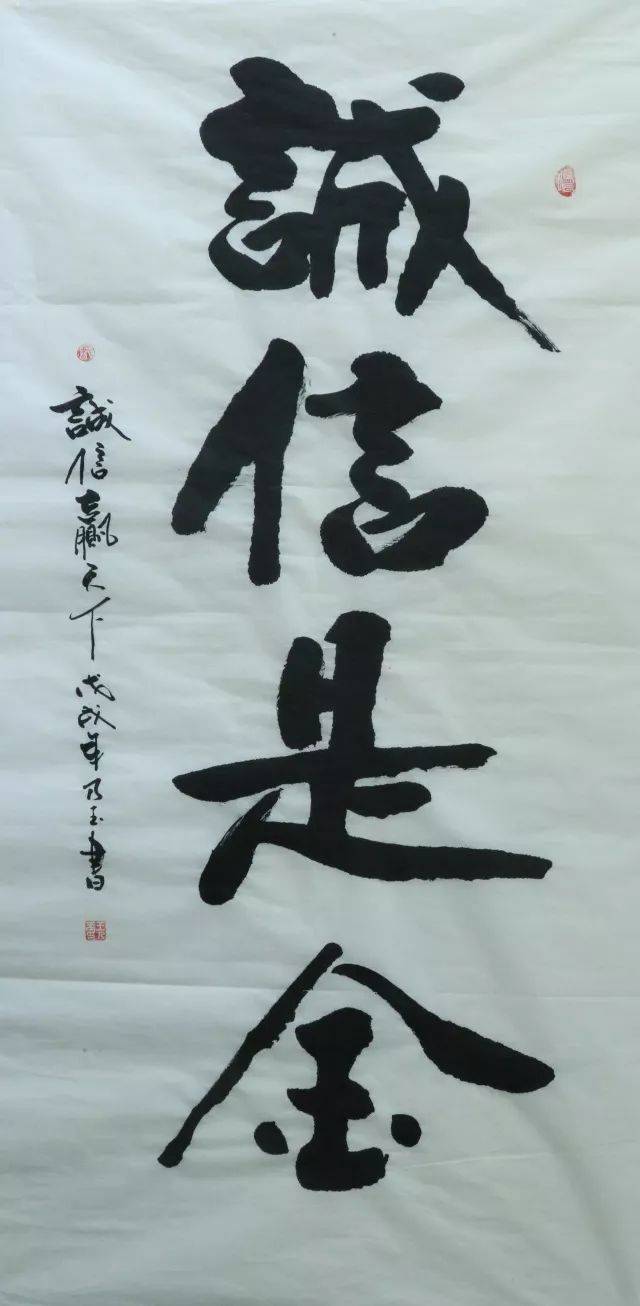 誠信是金
誠信贏天下戊戌年乃玉書